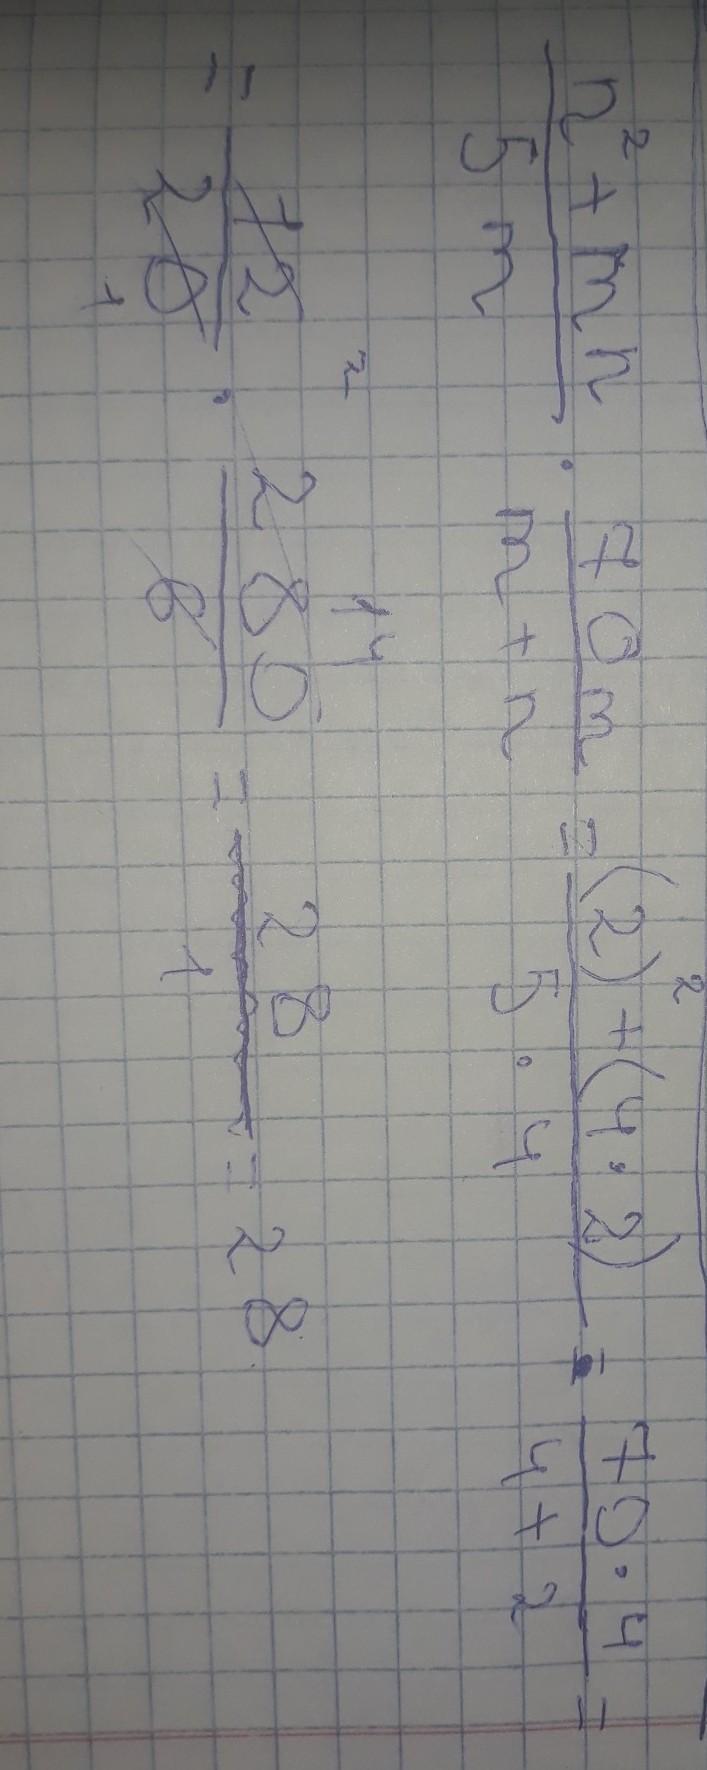 n² + mn / 5m · 70m / m + n = (2)² + (4 · 2) / 5 · 4 · 70 · 4 / 4 + 2 =
= 12 2 / 20 1 · 280 14 / 6 = 28 / 1 = 28